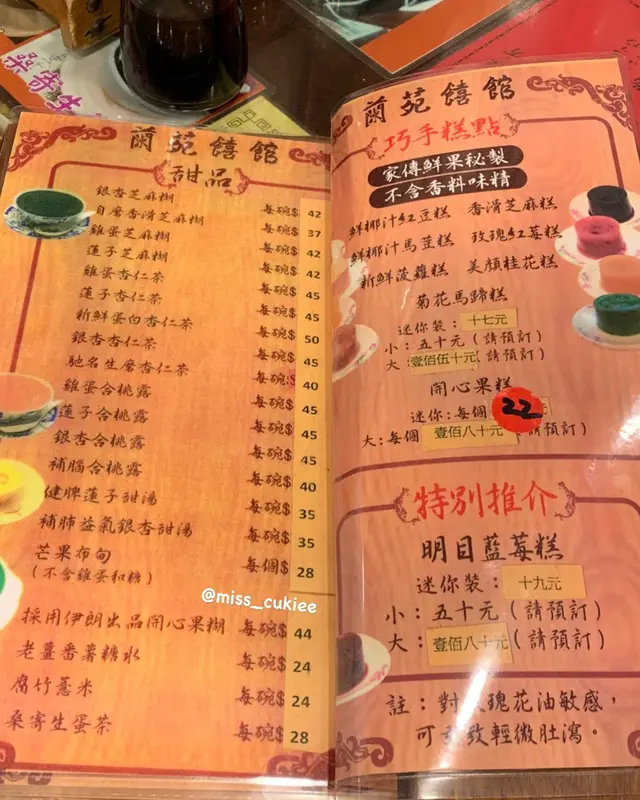 桑寄生
蘭苑饎館
甜品
銀杏芝麻糊 每碗$ 42
自磨香滑芝麻糊 每碗$ 37
雞蛋芝麻糊 每碗$ 42
蓮子芝麻糊 每碗$ 42
雞蛋杏仁茶 每碗$ 45
蓮子杏仁茶 每碗$ 45
新鮮蛋白杏仁茶 每碗$ 50
銀杏杏仁茶 每碗$ 45
馳名生磨杏仁茶 每碗$ 40
雞蛋合桃露 每碗$ 45
蓮子合桃露 每碗$ 45
銀杏合桃露 每碗$ 45
補腦合桃露 每碗$ 40
健脾蓮子甜湯 每碗$ 35
補肺益氣銀杏甜湯 每碗$ 35
芒果布甸 每個$ 28
(不含雞蛋和糖)
@miss_cukiee
採用伊朗出品開心果糊 每碗$ 44
老薑番薯糖水 每碗$ 24
腐竹薏米 每碗$ 24
桑寄生蛋茶 每碗$ 28
蘭苑饎館
巧手糕點
家傳鮮果秘製
不含香料味精
鮮椰汁紅豆糕 香滑芝麻糕
鮮椰汁馬豆糕 玫瑰紅莓糕
新鮮菠蘿糕 美顏桂花糕
菊花馬蹄糕
迷你裝：十七元
小：五十元(請預訂)
大：壹佰伍十元(請預訂)
開心果糕
迷你:每個 22
大:每個 壹佰八十元 (請預訂)
特別推介
明目藍莓糕
迷你裝：十九元
小：五十元(請預訂)
大：壹佰八十元(請預訂)
註：對玫瑰花油敏感，
可導致輕微肚瀉。